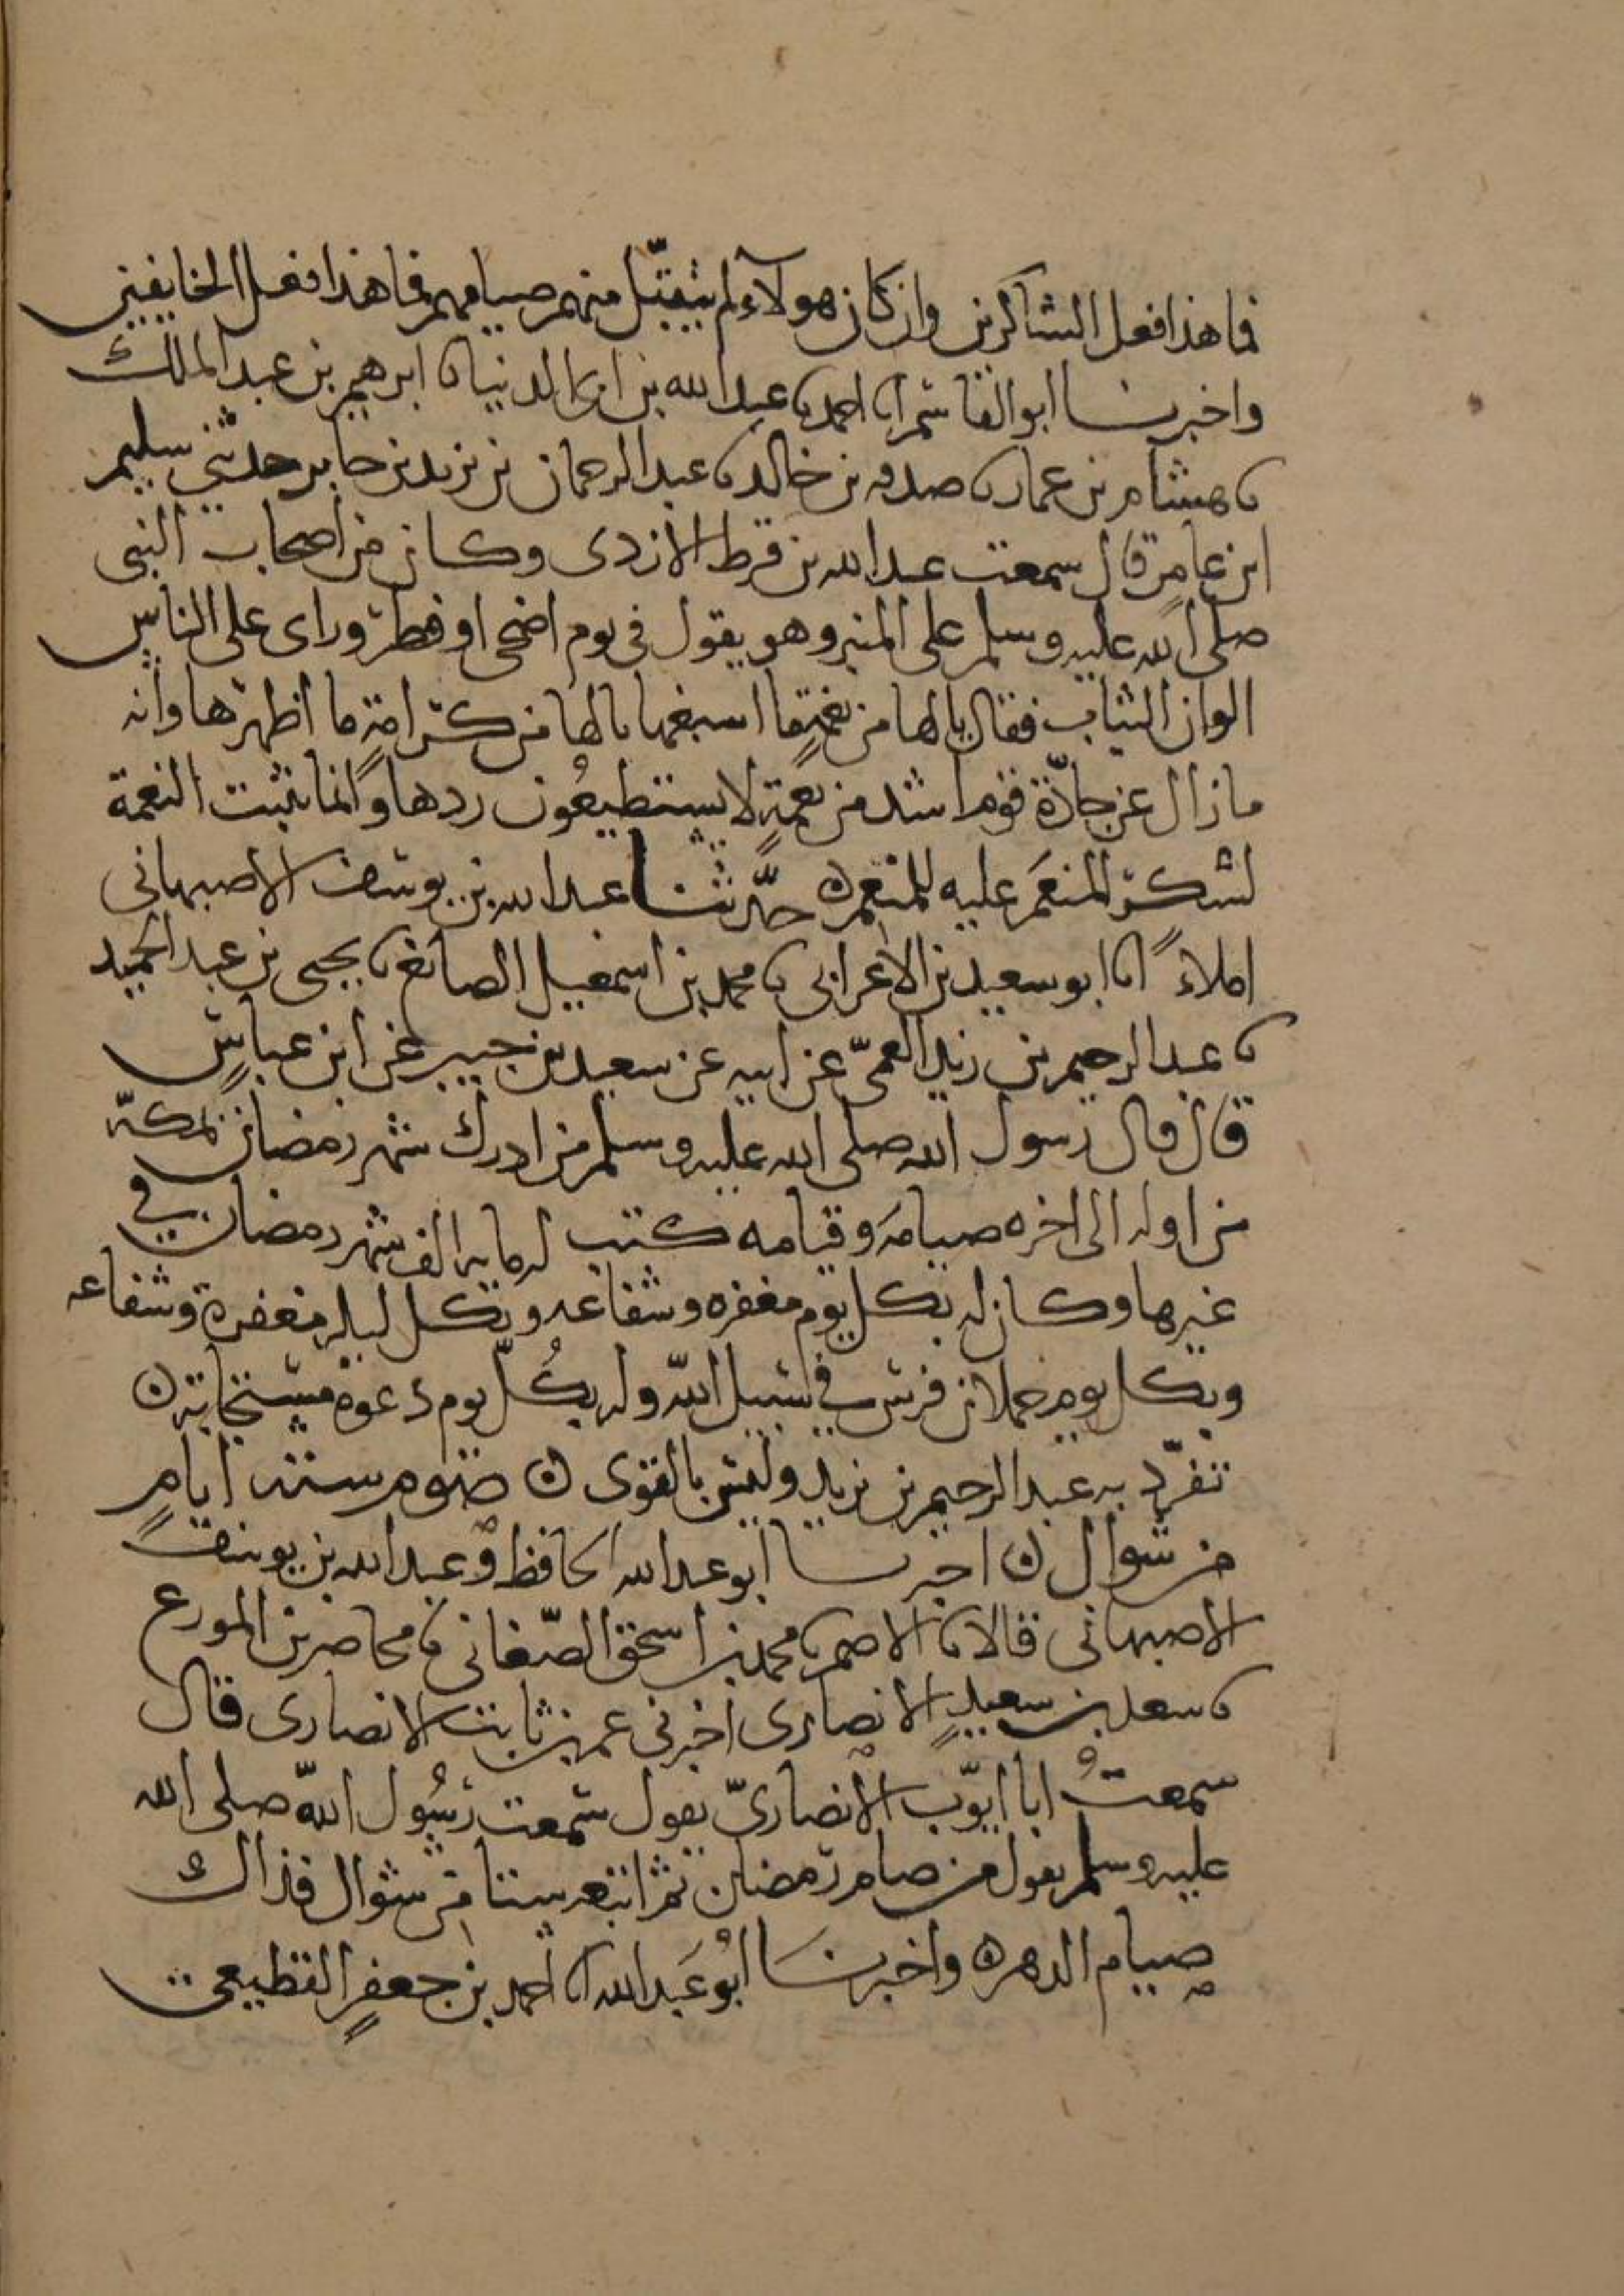 فما هذا فعل الشاكرين وان كان هولاء لم يتقبل منهم صيامهم فما هذا فعل الخايفين
واخبرنا ابو القاسم انا احمد نا عبد الله بن ابى الدنيا نا ابرهيم بن عبد الملك
نا هشام بن عمار نا صدقه بن خالد نا عبد الرحمان بن يزيد بن جابر حدثنى سليم
ابن عامر قال سمعت عبد الله بن قرط الازدى وكان من اصحاب النبى
صلى الله عليه وسلم على المنبر وهو يقول فى يوم اضحى او فطر وراى على الناس
الوان الثياب فقال يالها من نعمة ما اسبغها يالها من كرامة ما اظهرها وانه
ما زال عن جادّة قوم اشد من نعمةٍ لا يستطيعُون ردها وانما تثبت النعمة
لشكر المنعَم عليه للمنعم ه حدّثنا عبد الله بن يوسف الاصبهانى
املاءً انا ابو سعيد بن الاعرابى نا محمد بن اسمعيل الصائغ نا يحيى بن عبد الحميد
نا عبد الرحيم بن زيد العمىّ عن ابيه عن سعيد بن جبير عن ابن عباسٍ
قال قال رسول الله صلى الله عليه وسلم من ادرك شهر رمضان بمكة
من اوله الى اخره صيامَه وقيامه كتب له مايه الف شهر رمضان فى
غيرها وكان له بكل يوم مغفره وشفاعه وبكل ليله مغفرة وشفاعه
وبكل يوم حملان فرس فى سبيل الله وله بكُلّ يوم دعوة مستجابة ه
تفرّد به عبد الرحيم بن زيد وليس بالقوى ه صوم سته ايامٍ
من شوال ه اخبرنا ابو عبد الله الحافظ وعبد الله بن يوسف
الاصبهانى قالا نا الاصم نا محمد بن اسحق الصّغانى نا محاضر بن المورع
نا سعد بن سعيدٍ الانصارى اخبرنى عمر بن ثابت الانصارى قال
سمعتُ ابا ايّوب الانصارىّ يقول سمعت رسُول الله صلى الله
عليه وسلم يقول من صام رمضان ثم اتبعه ستا من شوال فذاك
صيام الدهر ه واخبرنَا ابُو عَبد الله انا احمد بن جعفرٍ القطيعى